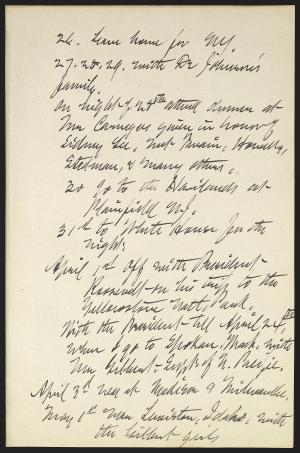 26. Leave home for N.Y.
27. 28. 29. with Dr Johnson's
family.
On night of 28th attend dinner at
Mr Carnegies given in honor of
Sidney Lee, met Twain, Howells,
Stedman, & many others.
30 Go to the Havilands at
Plainfield N.J.
31st to White House for the
night.
April 1st Off with President
Roosevelt on his trip to the
Yellowstone Natl. Park.
With the President till April 24th
when I go to Spokan, Wash. with
Mr Gilbert - of N. P.
April 3d was at Madison & Milwaukee.
May 1st near Lewiston, Idaho, with
the Gilbert girls